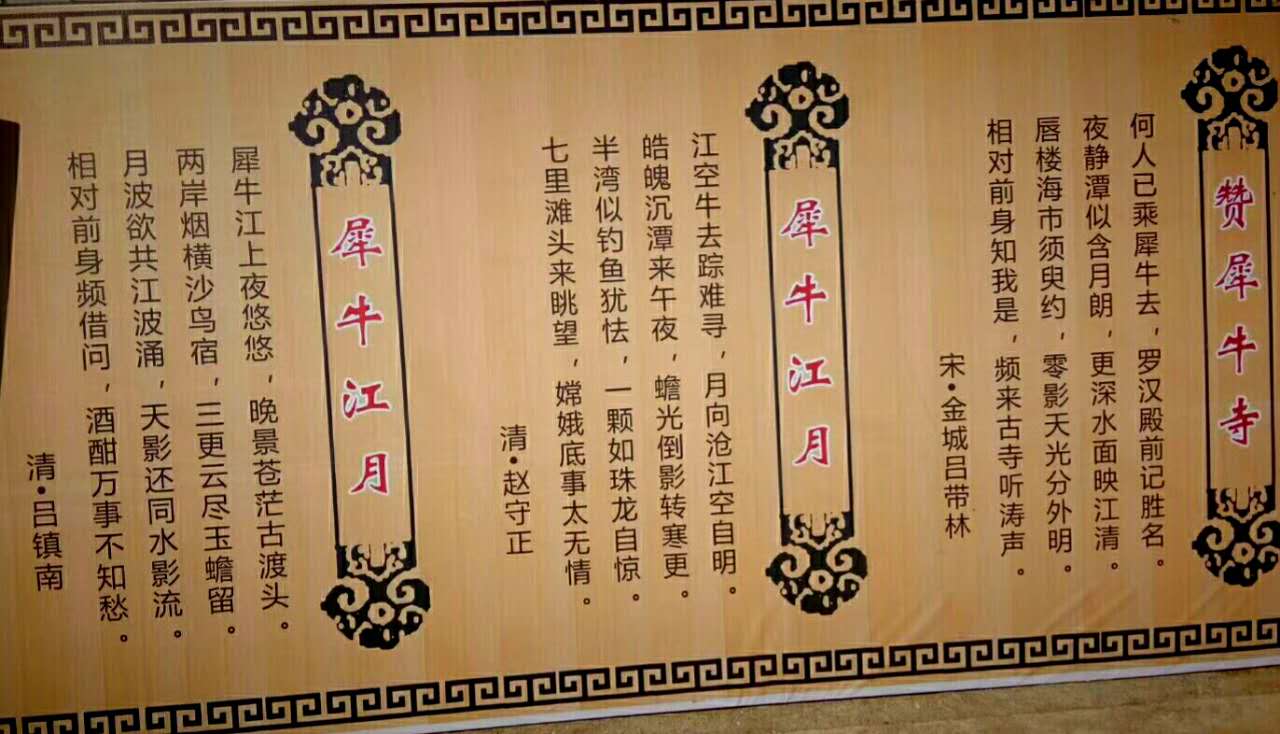 赞犀牛寺
何人已乘犀牛去，罗汉殿前记胜名。
夜静潭似含月朗，更深水面映江清。
唇楼海市须臾约，零影天光分外明。
相对前身知我是，频来古寺听涛声。
宋·金城吕带林
犀牛江月
江空牛去踪难寻，月向沧江空自明。
皓魄沉潭来午夜，蟾光倒影转寒更。
半湾似钓鱼犹怯，一颗如珠龙自惊。
七里滩头来眺望，嫦娥底事太无情。
清·赵守正
犀牛江月
犀牛江上夜悠悠，晚景苍茫古渡头。
两岸烟横沙鸟宿，三更云尽玉蟾留。
月波欲共江波涌，天影还同水影流。
相对前身频借问，酒酣万事不知愁。
清·吕镇南